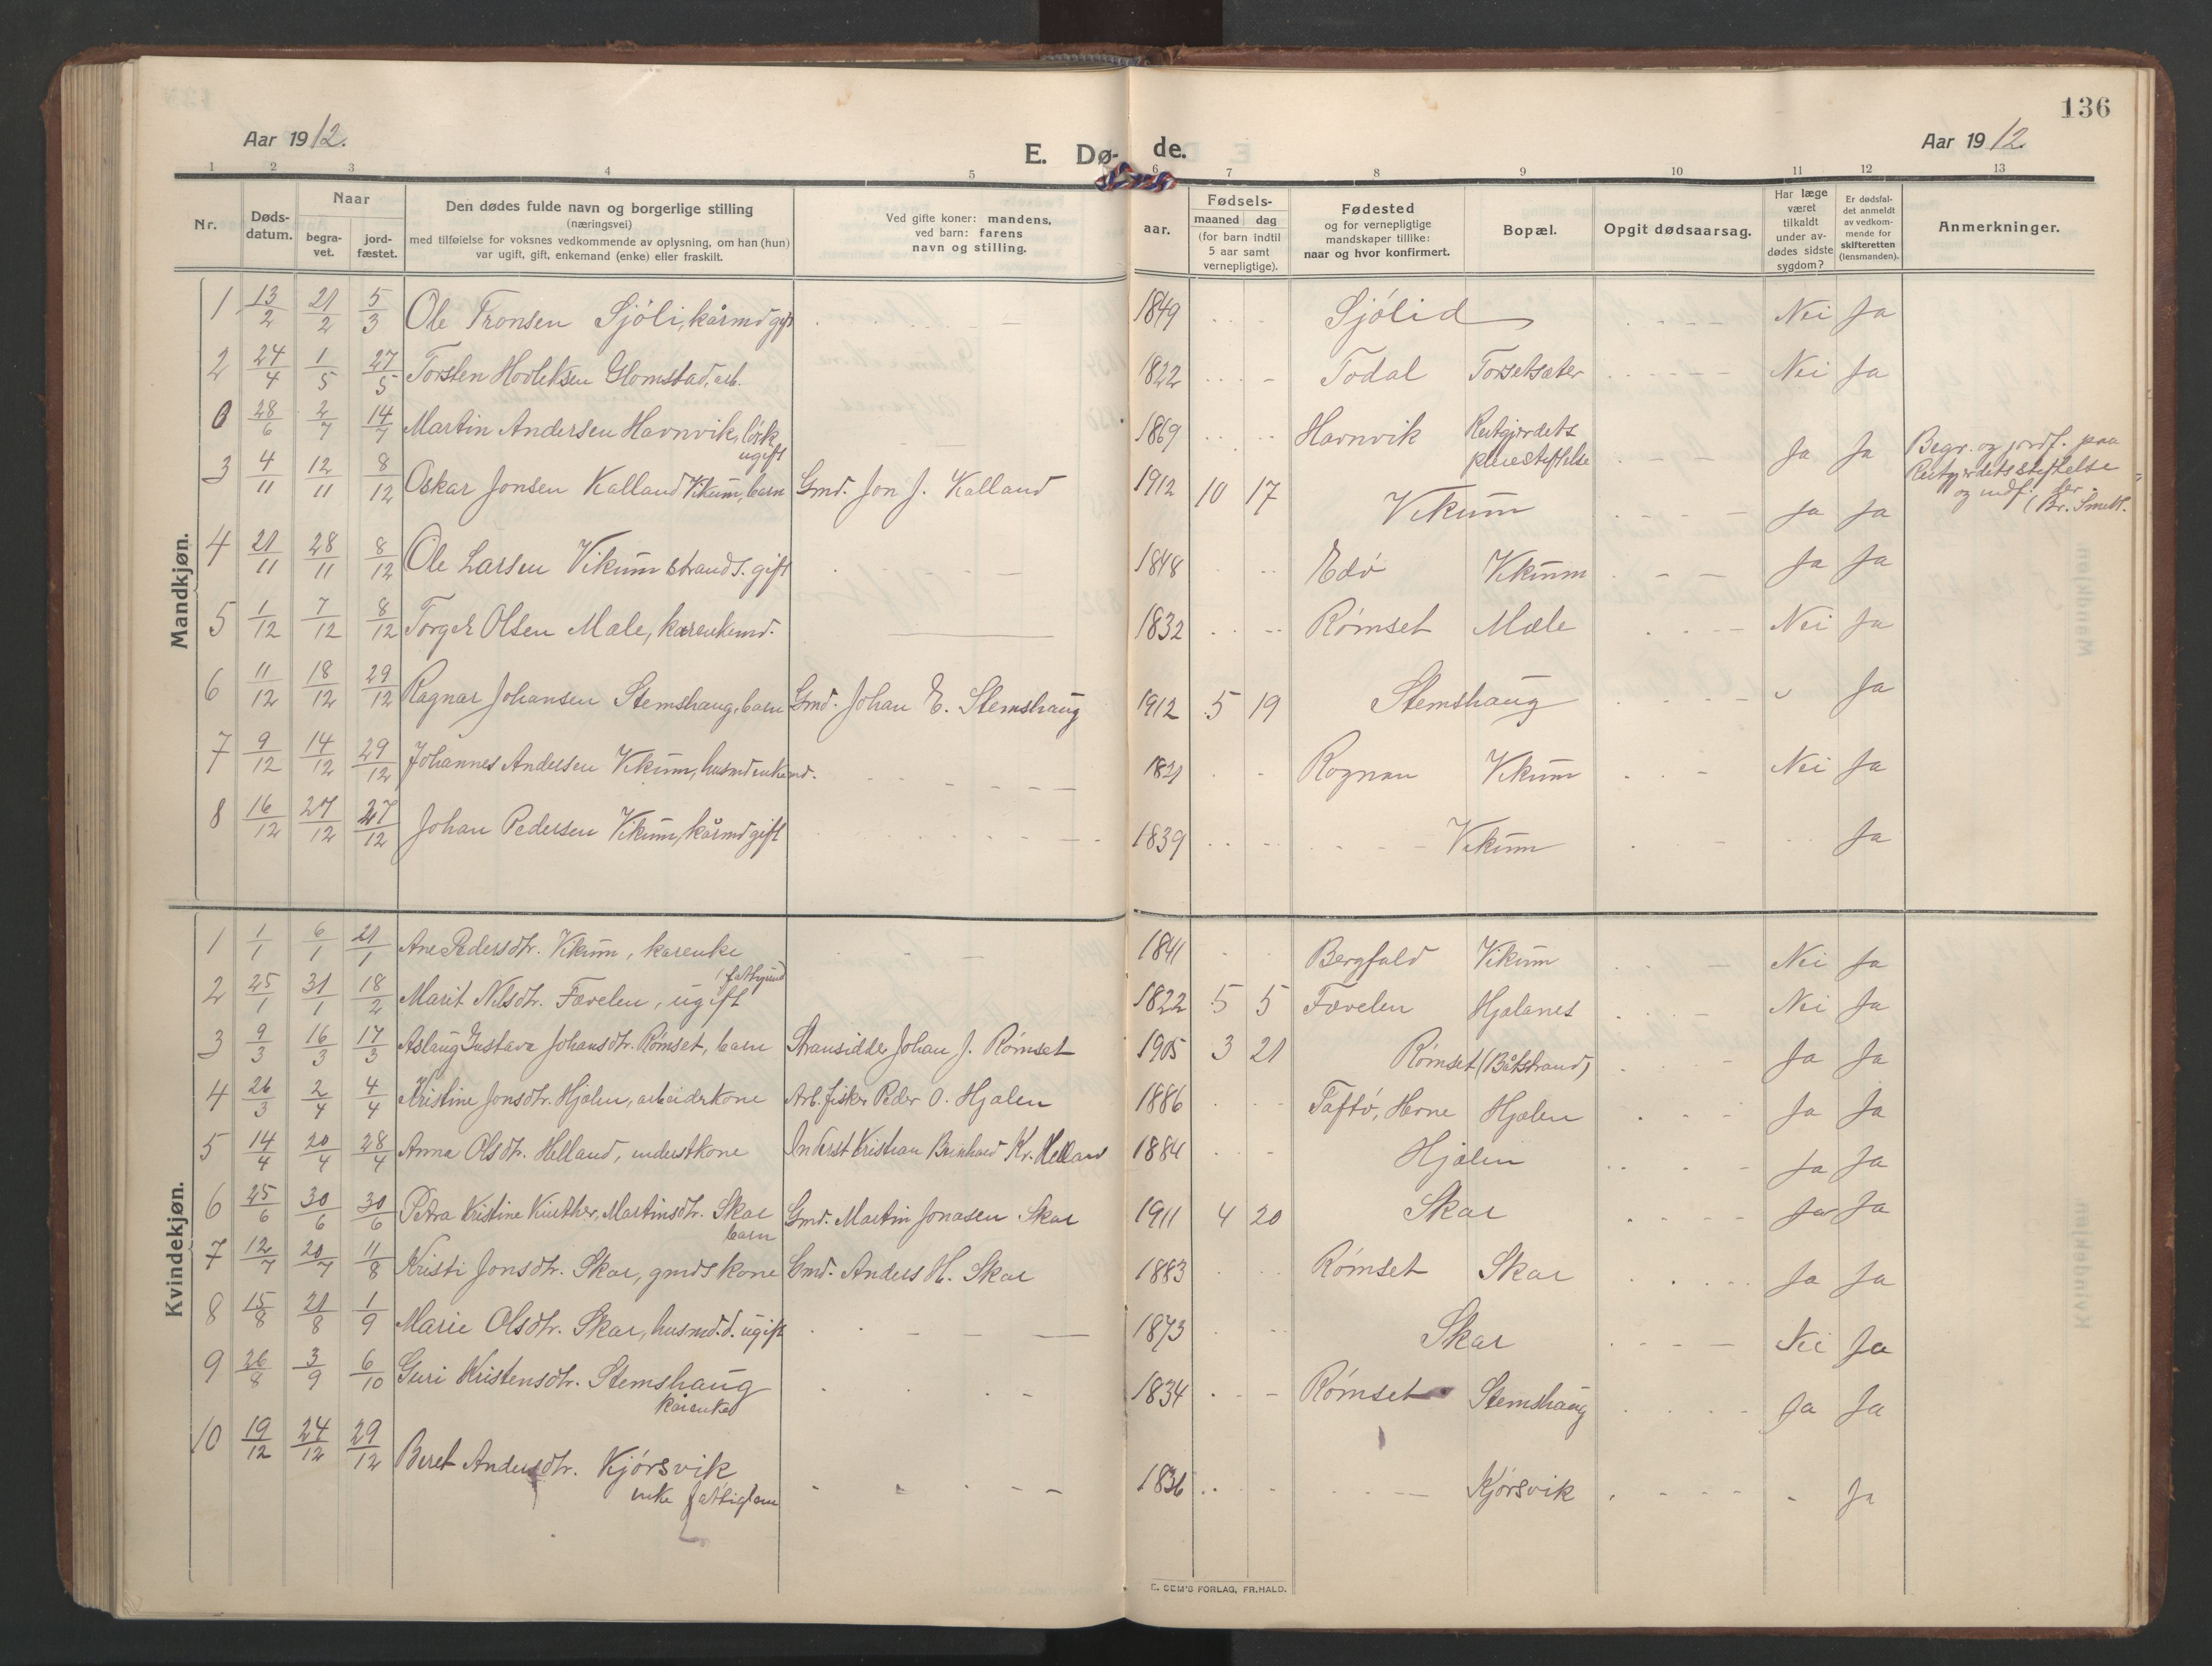 136
Aar 1912.
E. Dø- de.
Aar 1912.
1 2 3 4 5 6 7 8 9 10 11 12 13
Nr.
Døds-
datum.
Naar
begra-
vet.
jord-
fæstet.
Den dødes fulde navn og borgerlige stilling
(næringsvei)
med tilføielse for voksnes vedkommende av oplysning, om han (hun)
var ugift, gift, enkemand (enke) eller fraskilt.
Ved gifte koner: mandens,
ved barn: farens
navn og stilling.
Fødsels-
aar.
maaned dag
(for barn indtil
5 aar samt
vernepligtige).
Fødested
og for vernepligtige
mandskaper tillike:
naar og hvor konfirmert.
Bopæl.
Opgit dødsaarsag.
Har læge
været
tilkaldt
under av-
dødes sidste
sygdom?
Er dødsfal-
det anmeldt
av vedkom-
mende for
skifteretten
(lensmanden).
Anmerkninger.
Mandkjøn.
1 13/2 21/2 5/3 Ole Tronsen Sjöli, kårmd gift 1849 Sjölid Nei Ja
2 24/4 1/5 27/5 Torsten Hodleksen Glomstad, arb. 1822 Todal Torsetsæter Nei Ja
0 28/6 2/7 14/7 Martin Andersen Havnvik, løsk ugift 1869 Havnvik Reitgjerdets pleiestiftelse Ja Ja Begr. og jordf. paa Reitgjerdets stiftelse og indf. der (Br. Smeth.
3 4/11 12/11 8/12 Oskar Jonsen Kalland Vikum, barn Gmd. Jon J. Kalland 1912 10 17 Vikum Ja Ja
4 21/11 28/11 8/12 Ole Larsen Vikum strands. gift 1848 Edö Vikum Ja Ja
5 1/12 7/12 8/12 Torger Olsen Mæle, karenkemd. 1832 Rømset Mæle Nei Ja
6 11/12 18/12 29/12 Ragnar Johansen Stemshaug, barn Gmd. Johan E. Stemshaug 1912 5 19 Stemshaug Ja
7 9/12 14/12 29/12 Johannes Andersen Vikum, husmdenkemd. 1821 Rognan Vikum Nei Ja
8 16/12 27/12 27/12 Johan Pedersen Vikum, kårmd gift 1839 Vikum Ja
Kvindekjøn.
1 1/1 6/1 21/1 Ane Pedersdtr. Vikum, karenke 1841 Bergfald Vikum Nei Ja
2 25/1 31/1 18/2 Marit Nilsdtr. Fævelen, ugift 1822 5 5 Fævelen Hjælanes Nei Ja
3 9/3 16/3 17/3 Aslaug Gustava Johansdtr. Rømset, barn Stransidder Johan J. Rømset 1905 3 21 Rømset (Båtstrand) Ja Ja
4 26/3 2/4 4/4 Kristine Jonsdtr. Hjælen, arbeiderkone Arb. fisker Peder O. Hjælen 1886 Taftö, Herne Hjælen Ja Ja
5 14/4 20/4 28/4 Anna Olsdtr. Helland, inderstkone Inderst Kristian Bernhard Kr. Helland 1884 Hjælen Ja Ja
6 25/6 30/6 30/6 Petra Kristine Martinsdtr. Skar barn Gmd. Martin Jonasen Skar 1911 4 20 Skar Ja Ja
7 12/7 20/7 11/8 Kristi Jonsdtr. Skar, gmds kone Gmd. Anders H. Skar 1883 Rømset Skar Ja Ja
8 15/8 21/8 1/9 Marie Olsdtr. Skar, husmd.d. ugift 1873 Skar Nei Ja
9 26/8 3/9 6/10 Guri Kristensdtr. Stemshaug karenke 1834 Rømset Stemshaug Ja Ja
10 19/12 24/12 29/12 Beret Andersdtr. Kjörsvik enke fattiglem 1836 Kjörsvik Ja
E. SEM'S FORLAG, FR.HALD.